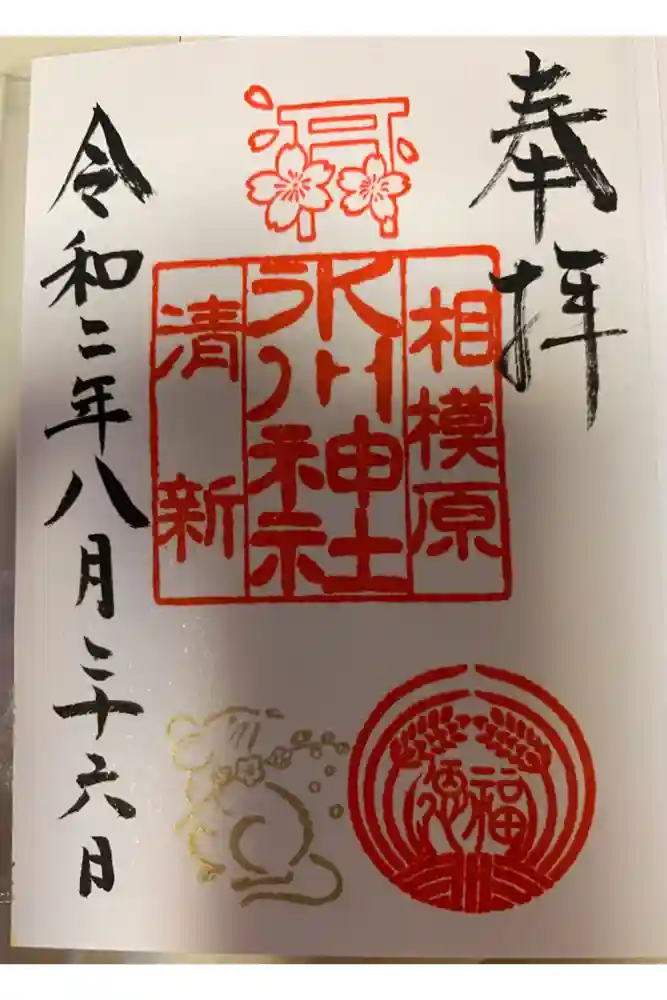 奉拝
相模原
氷川神社
清新
福徳
令和二年八月二十六日